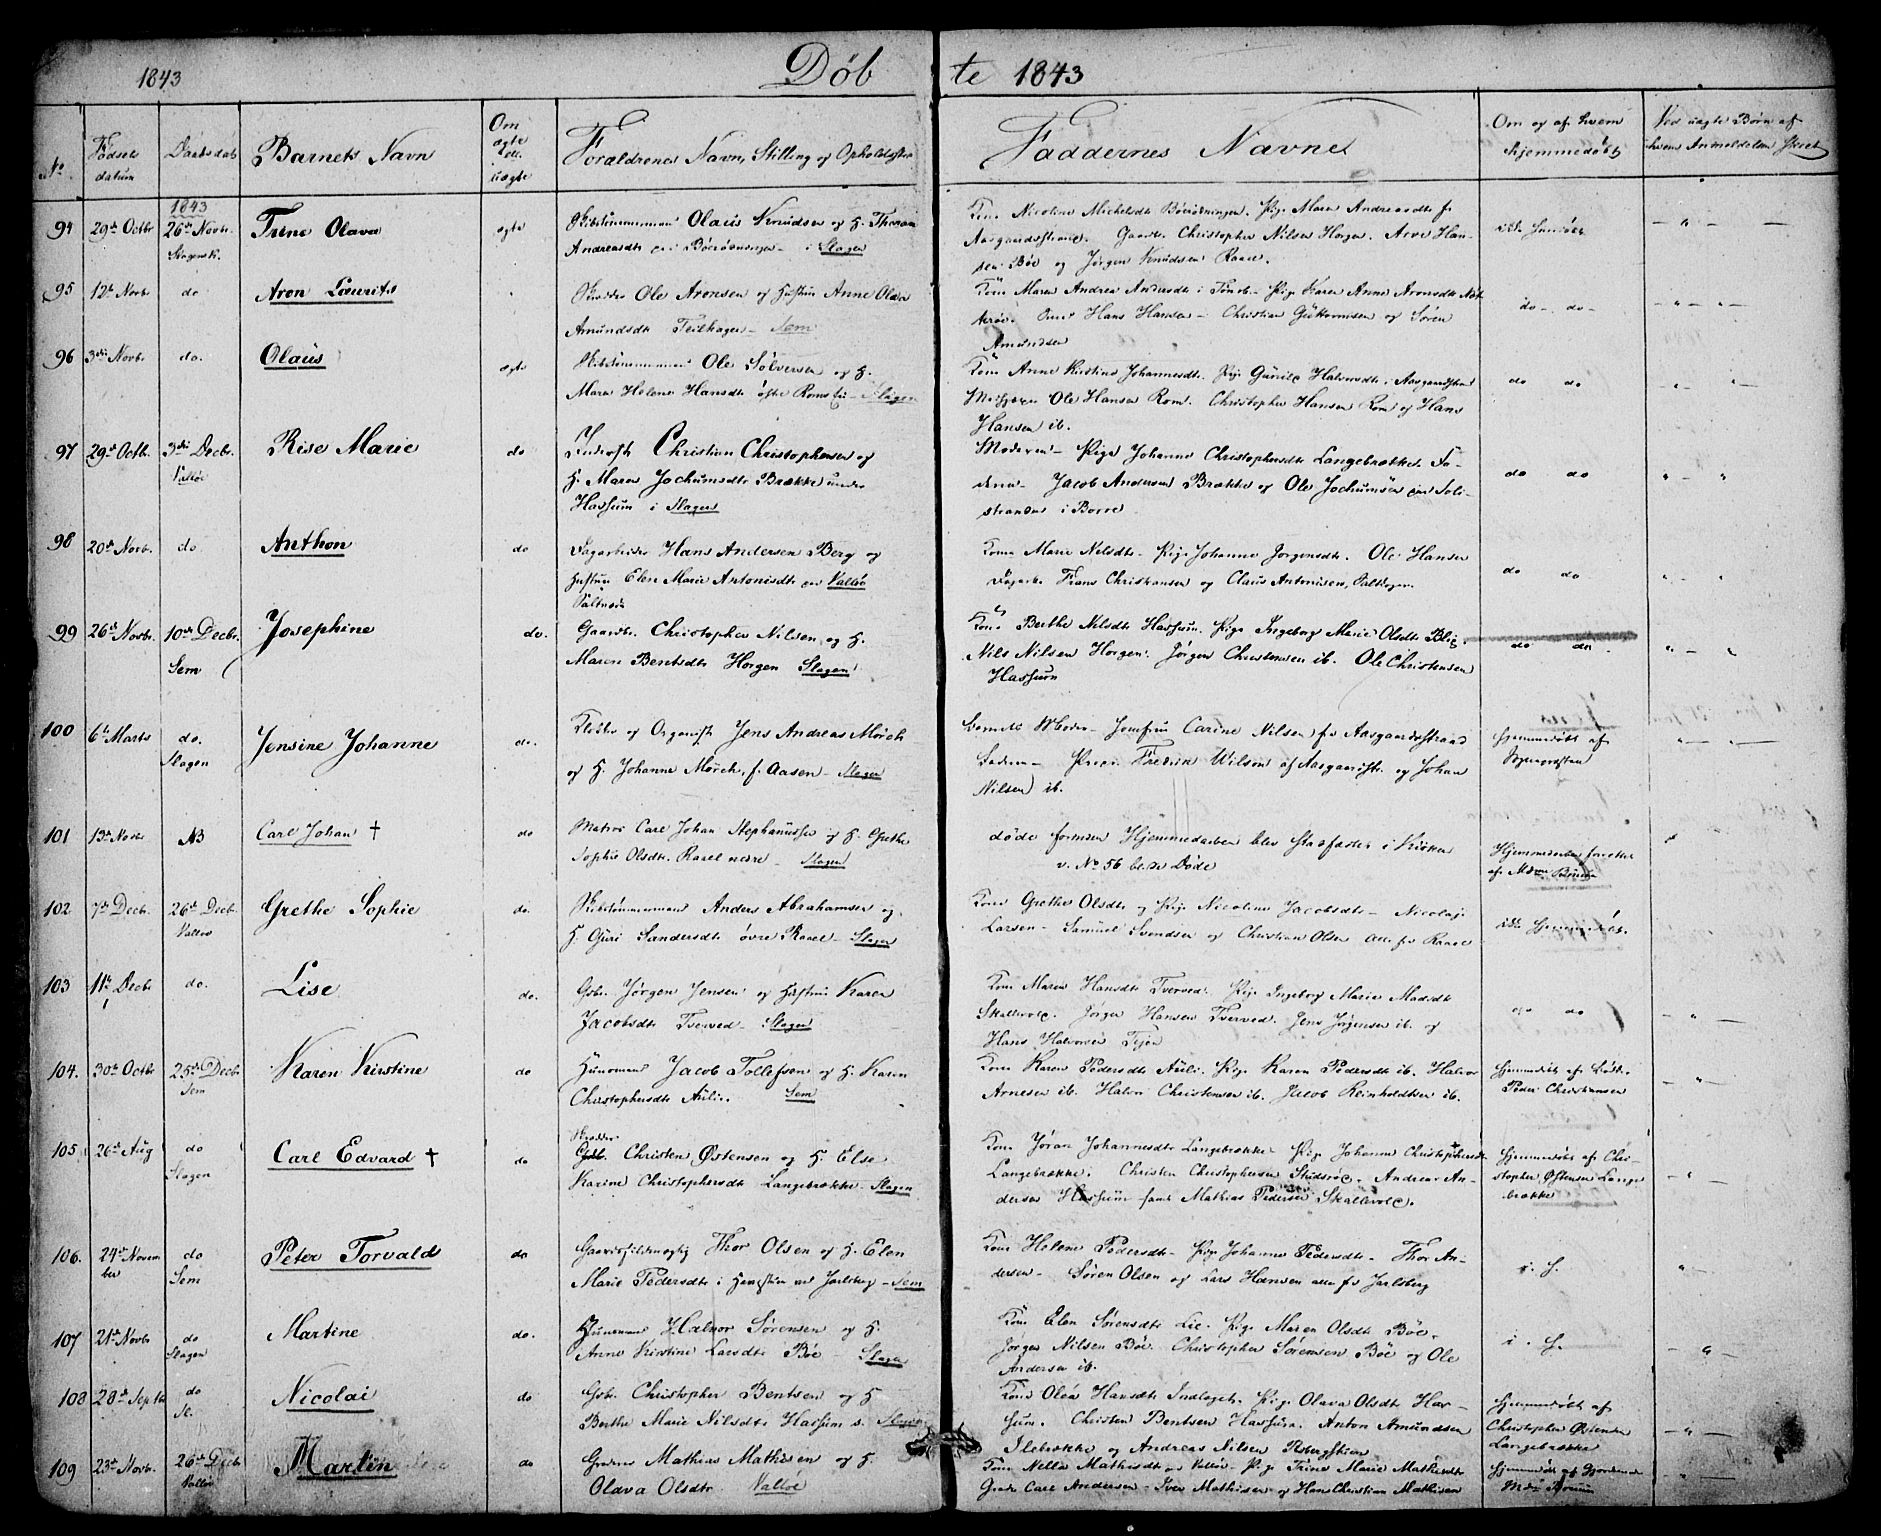 1843 Døb te 1843
No Fødsels datum Daabsdat. Barnets Navn Om ægte ell. uægte Forældrenes Navn, Stilling og Opholdssted Faddernes Navne Om og af hvem hjemmedøbt Ved uægte Børn af hvem Anmeldelsen skeet
1843
94 29de Octbr 26de Novbr. Slagensk. Trine Olava ægte
Skibstømmermand Olaus Knudsen og H. Thorine
Andreasdtr i Slagen
Kone Nicoline Michelsdtr Pige Maren Andreasdtr fr
Aasgaardsstrand. Gaardbr. Christopher Nilsen Horgen. Arve Han-
sen Bøe og Jørgen Knudsen Raael.
95 12te Novbr do Aron Lauritz
Ole Aronsen og Hustru Anne Olava
Amundsdtr Teilhagen Sem
Kone Maren Andrea Andersdtr i Tønsb. Pige Karen Anne Aronsdtr
Hans Hansen Christian Guttormsen og Søren
Amundsen
do do
96 3die Novbr. do. Olaus ægte
Skibstømmermand Ole Sølversen og H.
Maren Helene Hansdtr østre Rom Slagen
Kone Anne Kirstine Johannesdtr. Pige Gunild Halvorsdtr. Aasgaardstrand
Ole Hansen Rom. Christopher Hansen Rom og Hans
Hansen ib.
do do
97 29de Octbr. 3die Decbr. Valløe Rise Marie do
Inderst Christian Christophersen og
H. Maren Jochumsdtr Brække under
Hassum i Slagen
Moderen Pige Johanne Christophersdtr Langebrække. Fa-
deren Jacob Andersen Brække og Ole Jochumsen
stranden i Borre
do do
98 20de Novbr. do Anthon do
Dagarbeider Hans Andersen Berg og
Hustru Elen Marie Antonisdtr ved Valløe
Saltværk
Kone Marie Nilsdtr Pige Johanne Jørgensdtr. Ole Hansen
Dagarb. Frans Christiansen og Claus Antonisen,
do do
99 26de Novbr. 10de Decbr. Sem Josephine do.
Gaardbr. Christopher Nilsen og H.
Maren Bentsdtr Horgen Slagen
Kone Berthe Nilsdtr Hassum. Pige Ingeborg Marie Olsdtr Blix.
Nils Nilsen Horgen. Jørgen Christensen ib. Ole Christensen
Hassum
do do
100 6te Marts do. Slagen Jensine Johanne do.
Klokker og Organist Jens Andreas Mørch
og H. Johanne Mørch, f. Aasen Slagen
Barnets Moder Jomfru Carine Nilsen fr Aasgaardsstrand
Faderen Fredrik Wilson af Aasgaardstr. og Johan
Nilsen ib.
Hjemmedøbt af
101 13de Novbr NB Carl Johan † do
Matros Carl Johan Stephanussen og H. Grethe
Sophie Olsdtr. Raael nedre Slagen
døde førend Hjemmedaaben blev stadfæstet i Kirken
v. No 56 bl. de Døde
Hjemmedaaben forrettet
af
102 7de Decbr. 26de Decbr. Valløe Grethe Sophie do.
Skibstømmermand Anders Abrahamsen og
H. Guri Sandersdtr øvre Raael Slagen
Kone Grethe Olsdtr og Pige Nicoline Jacobsdtr Nicolaj
Larsen Samuel Svendsen og Christian Olsen alle fr Raael
ikke hjemmedøbt.
103 11te Decbr do. Lise do.
Gbr. Jørgen Jensen og Hustru Karen
Jacobsdtr Tverved Slagen
Kone Maren Hansdtr Tverved. Pige Ingeborg Marie Madsdtr
Skallevold. Jørgen Hansen Tverved. Jens Jørgensen ib. og
Hans Halvorsen
do
104. 30te Octbr 25de Decbr Sem Karen Kirstine do
Huusmand Jacob Tollefsen og H. Karen
Christophersdtr Aulie. Sem
Kone Karen Pedersdtr Aulie. Pige Karen Pedersdtr ib. Halvor
Arnesen ib. Halvor Christensen ib. Jacob Reinholdtsen ib.
Hjemmedøbt af
Peder Christiansen
105 26de Aug do Slagen Carl Edvard † do
Skrædder
Gbr. Christen Østensen og H. Else
Karine Christophersdtr Langebrække Slagen
Kone Jøran Johannesdtr Langebrække Pige Johanne Christophersdtr
Langebrække. Christen Christophersen Andreas An-
dersen Hassum samt Mathias Pedersen Skallevold.
Hjemmedøbt af Chri-
stopher Østensen Lange
brække
106. 24de Novem ber do Sem Peter Torvald do
Thor Olsen og H. Elen
Marie Pedersdtr i ved Jarlsberg Sem
Kone Helene Pedersdtr Pige Johanne Pedersdtr Thor An-
dersen Søren Olsen og Lars Hansen alle fr Jarlsberg
i. H.
107 21de Novbr do Slagen Martine do.
Huusmand Halvor Sørensen og H.
Anne Kirstine Larsdtr Bøe Slagen
Kone Elen Sørensdtr Lie. Pige Maren Olsdtr Bøe.
Jørgen Nilsen Bøe. Christopher Sørensen Bøe og Ole
Andersen ib.
i. H.
108 28de Septbr do Sl. Nicolai do
Gbr. Christopher Bentsen og H
Berthe Marie Nilsdtr Hassum Slagen
Kone Olea Hansdtr Pige Olava Olsdtr Has-
sum. Christen Bentsen Hassum. Anton Amundsen
Ilebrække og Andreas Nilsen
Hjemmedøbt af
Christopher Østensen
Langebrække
109 23de Novbr. 26de Decbr Valløe Martin do
Mathias Mathisen og H.
Olava Olsdtr. Valløe
Kone Nella Mathisdtr Valløe Pige Trine Marie Mathisdtr
Carl Andersen Iver Mathisen og Hans Christian Mathisen
Hjemmedøbt af Gjordemod